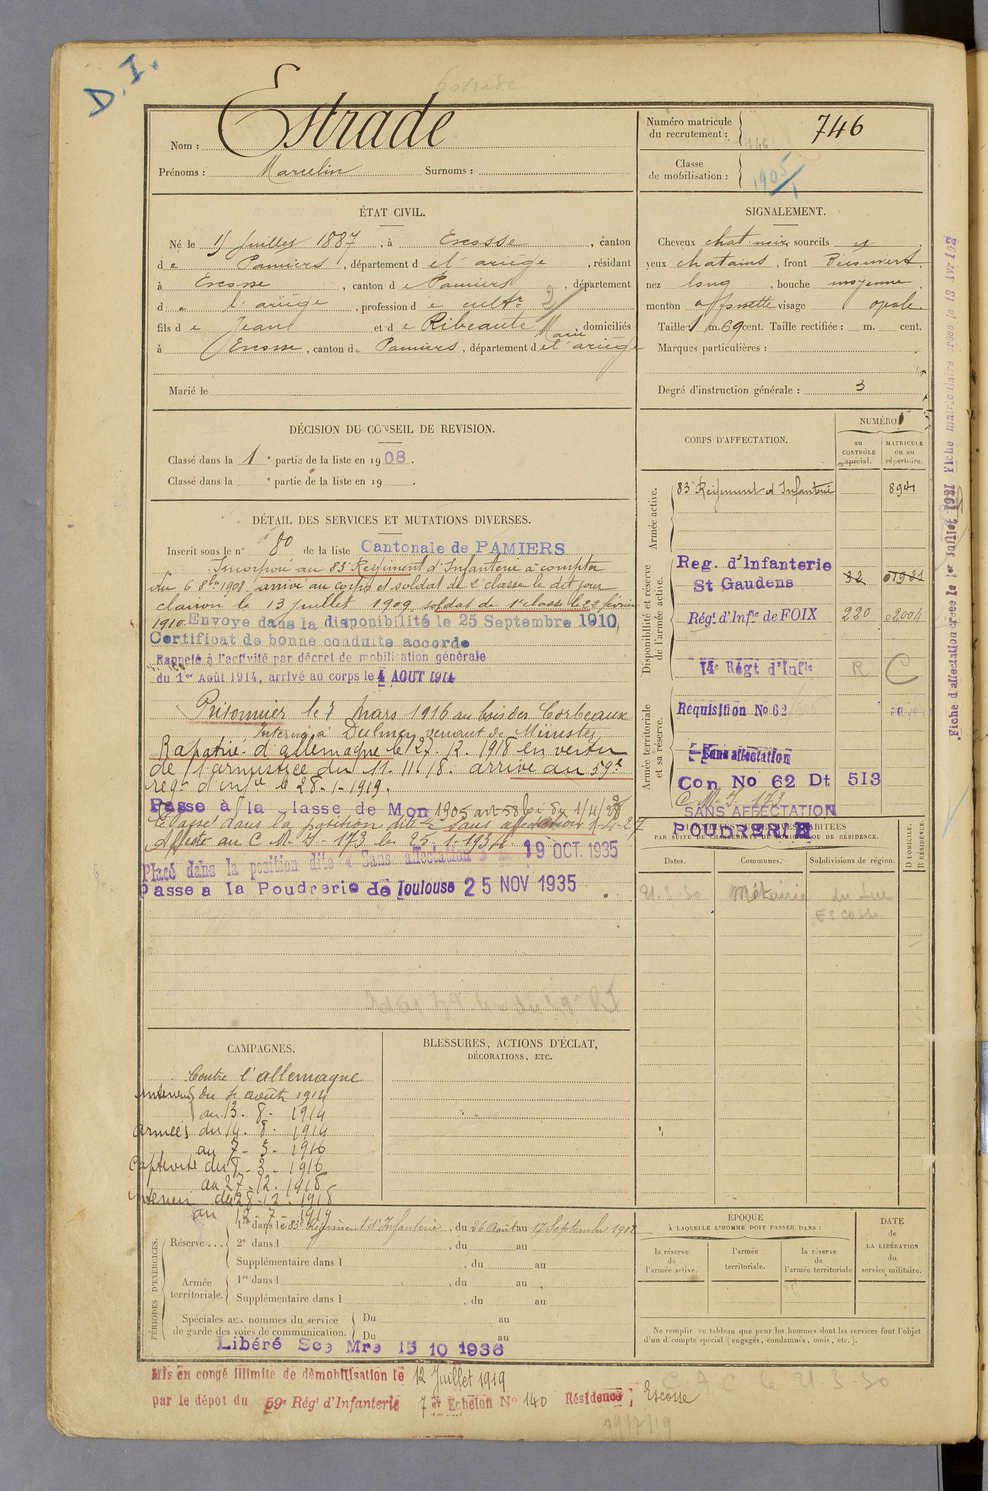 D. I.
Estrade
Nom : Estrade
Prénoms : Marcelin Surnoms :
Numéro matricule du recrutement : 746
Classe de mobilisation : 1905/1
ÉTAT CIVIL.
Né le 15 Juillet 1887, à Escosse, canton
de Pamiers, département d el' ariège, résidant
à Escosse, canton de Pamiers, département
d e l'ariège, profession de cultr 2
fils de Jean et de Ribeaute Marie, domiciliés
à Escosse, canton de Pamiers, département d el'ariège
Marié le
SIGNALEMENT.
Cheveux chat noir sourcils id
yeux chatains, front Découvert
nez long, bouche moyenne
menton à fossette visage ovale
Taille 1 m. 69 cent. Taille rectifiée : m. cent.
Marques particulières :
Degré d'instruction générale : 3
DÉCISION DU CONSEIL DE REVISION.
Classé dans la 1e partie de la liste en 1908.
Classé dans la e partie de la liste en 19 .
DÉTAIL DES SERVICES ET MUTATIONS DIVERSES.
Inscrit sous le n° 80 de la liste Cantonale de PAMIERS
Incorporé au 83e Régiment d'Infanterie à compter
du 6 8bre 1908. arrivé au corps et soldat de 2e classe le dit jour
clairon le 13 Juillet 1909, soldat de 1e classe le 22 février
1910. Envoyé dans la disponibilité le 25 Septembre 1910,
Certificat de bonne conduite accordé
Rappelé à l'activité par décret de mobilisation générale
du 1er Août 1914, arrivé au corps le 4 AOUT 1914
Prisonnier le 7 Mars 1916 au bois des Corbeaux
Interné à Dulmen venant de Münster
Rapatrié d'allemagne le 27. 12. 1918 en vertu
de l'armistice du 11. 11. 18. arrivé au 59e
regt d'infie le 28-1-1919.
Passé à la classe de Mon 1905 art 58 loi du 1/4/23
Placé dans la position dite " Sans affectation
Affecté au C. M. J. 173 le 25-1-1934.
Placé dans la position dite « Sans affectation » 19 OCT. 1935
Passé a la Poudrerie de Toulouse 25 NOV 1935
CORPS D'AFFECTATION.
NUMÉROS
au CONTRÔLE spécial.
MATRICULE ou au répertoire.
Armée active.
83e Régiment d'Infanterie 8941
Disponibilité et réserve de l'armée active.
Reg. d'Infanterie St Gaudens
Régt d'Infie de FOIX 220 02004
14e Régt d'Infie R C
Armée territoriale et sa réserve.
Requisition No 62
Sans affectation
Con No 62 Dt 513
C. M. J. 173
SANS AFFECTATION
POUDRERIE
Dates. Communes. Subdivisions de région. D DOMICILE. R RÉSIDENCE.
21.3.30 Métairie du Luc
Escosse
CAMPAGNES.
Contre l'allemagne
Intérieur du 4 août 1914
au 13 - 8 - 1914
Armées du 14 - 8 - 1914
au 7 - 3 - 1916
Captivité du 8 - 3 - 1916
au 27 - 12 - 1918
Intérieur du 28 - 12 - 1918
au 12 - 7 - 1919
BLESSURES, ACTIONS D'ÉCLAT,
DÉCORATIONS, ETC.
PÉRIODES D'EXERCICES.
Réserve ...
1re dans le 83e Régiment d'Infanterie, du 26 Août au 17 Septembre 1912
2e dans l , du au
Supplémentaire dans l , du au
Armée territoriale.
1re dans l , du au
Supplémentaire dans l , du au
Spéciales aux hommes du service
de garde des voies de communication.
Du au
Du au
Libéré Sce Mre 15 10 1936
ÉPOQUE
À LAQUELLE L'HOMME DOIT PASSER DANS :
la réserve de l'armée active.
l'armée territoriale.
la réserve de l'armée territoriale
DATE DE LA LIBÉRATION du service militaire.
Ne remplir ce tableau que pour les hommes dont les services font l'objet
d'un décompte spécial (engagés, condamnés, omis, etc.).
C A C le 21.3.30
Mis en congé illimité de démobilisation le 12 Juillet 1919
par le dépôt du 59e Régt d'Infanterie 7e Echelon No 140 Résidence Escosse
19/7/19